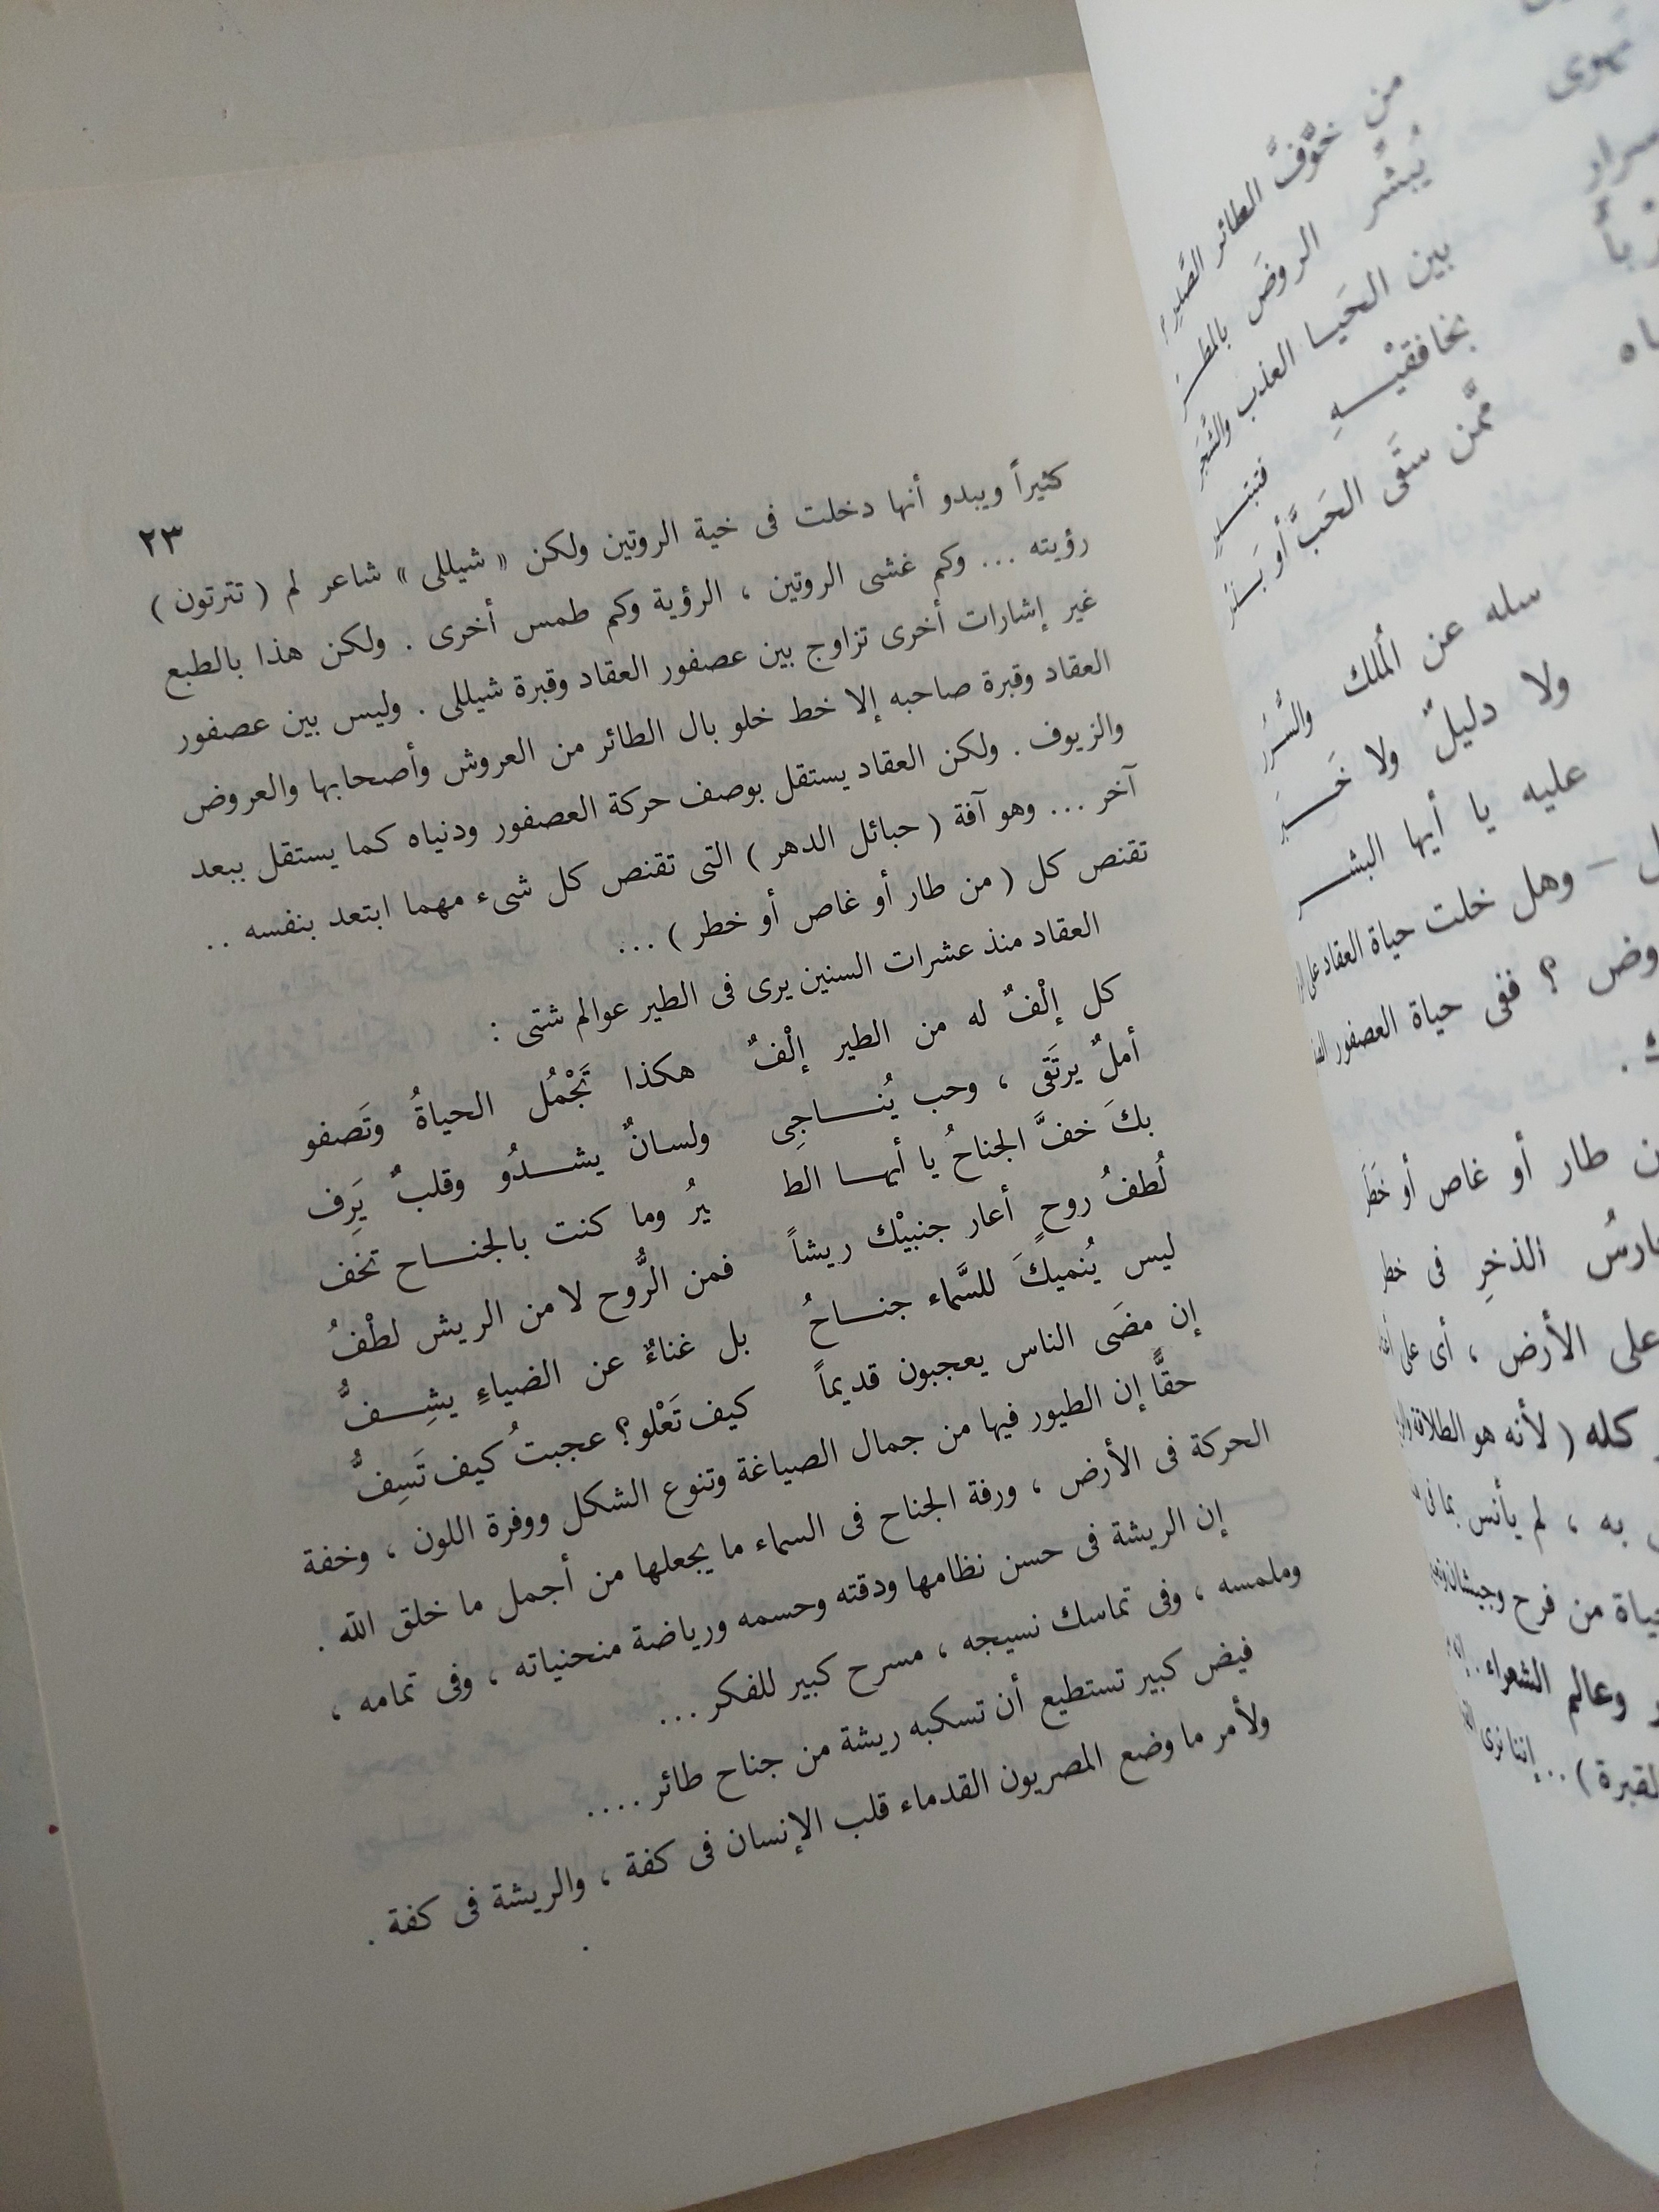 من خوَّف الطائر الصَّدوح
يُبشِّر الروضَ بالمطـر
بين الحَيـا العذب والشَّجَر
بخافقيْـهِ فتبتـدر
ممَّن سقَى الحَبَّ أو بَذَر
سله عن الملك والسُّرُر
ولا دليلٌ ولا خَـبَر
عليه يا أيها البشـر
وهل خلت حياة العقاد
؟ ففى حياة العصفور
طار أو غاص أو خَطَر
الذخرِ فى خطر
على الأرض ، أى على
كله ( لأنه هو الطلاقة
به ، لم يأنس بما فى
من فرح
وعالم الشعراء ..
... إننا نرى
٢٣
كثيراً ويبدو أنها دخلت فى خية الروتين ولكن « شيللى » شاعر لم ( تترتون )
رؤيته ... وكم غشى الروتين ، الرؤية وكم طمس أخرى . ولكن هذا بالطبع
غير إشارات أخرى تزاوج بين عصفور العقاد وقبرة شيللى . وليس بين عصفور
العقاد وقبرة صاحبه إلا خط خلو بال الطائر من العروش وأصحابها والعروض
والزيوف . ولكن العقاد يستقل بوصف حركة العصفور ودنياه كما يستقل ببعد
آخر ... وهو آفة ( حبائل الدهر ) التى تقنص كل شىء مهما ابتعد بنفسه ..
تقنص كل ( من طار أو غاص أو خطر ) ...
العقاد منذ عشرات السنين يرى فى الطير عوالم شتى :
كل إلْفٌ له من الطير إلْفٌ هكذا تَجْمُل الحياةُ وتَصفو
أملٌ يرتَقَى ، وحب يُنـاجِى ولسانٌ يشـدُو وقلبٌ يَرِف
بكَ خفَّ الجناحُ يا أيها الط يرُ وما كنت بالجناح تخف
لُطفُ روحٍ أعار جنبيْك ريشاً فمن الرُّوح لا من الريش لطْفُ
ليس يُنميكَ للسَّماء جناحُ بل غناءٌ عن الضياءِ يشِـفُّ
إن مضَى الناس يعجبون قديماً كيف تَعْلو؟ عجبتُ كيف تَسِفُّ
حقًّا إن الطيور فيها من جمال الصياغة وتنوع الشكل ووفرة اللون ، وخفة
الحركة فى الأرض ، ورفة الجناح فى السماء ما يجعلها من أجمل ما خلق الله .
إن الريشة فى حسن نظامها ودقته وحسمه ورياضة منحنياته ، وفى تمامه ،
وملمسه ، وفى تماسك نسيجه ، مسرح كبير للفكر ...
فيض كبير تستطيع أن تسكبه ريشة من جناح طائر ....
ولأمر ما وضع المصريون القدماء قلب الإنسان فى كفة ، والريشة فى كفة .